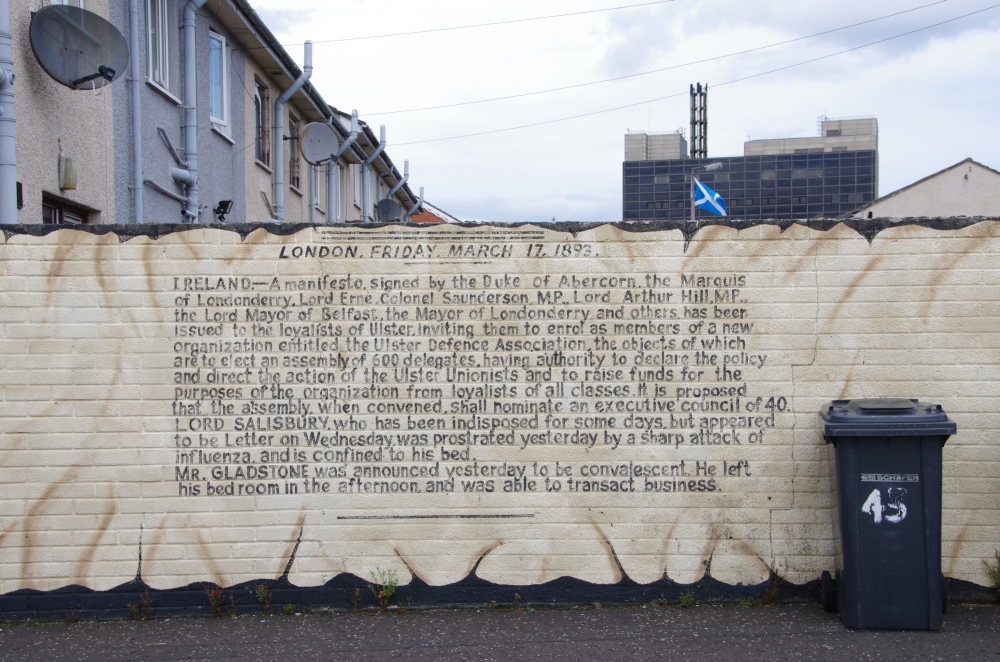 LONDON, FRIDAY, MARCH 17, 1893.
IRELAND.—A manifesto, signed by the Duke of Abercorn, the Marquis
of Londonderry, Lord Erne, Colonel Saunderson, M.P., Lord Arthur Hill, M.P.,
the Lord Mayor of Belfast, the Mayor of Londonderry, and others, has been
issued to the loyalists of Ulster, inviting them to enrol as members of a new
organization entitled the Ulster Defence Association, the objects of which
are to elect an assembly of 600 delegates, having authority to declare the policy
and direct the action of the Ulster Unionists and to raise funds for the
purposes of the organization from loyalists of all classes. It is proposed
that the assembly, when convened, shall nominate an executive council of 40.
LORD SALISBURY, who has been indisposed for some days, but appeared
to be Letter on Wednesday, was prostrated yesterday by a sharp attack of
influenza, and is confined to his bed.
MR. GLADSTONE was announced yesterday to be convalescent. He left
his bedroom in the afternoon, and was able to transact business.
SSI SCHÄFER
43